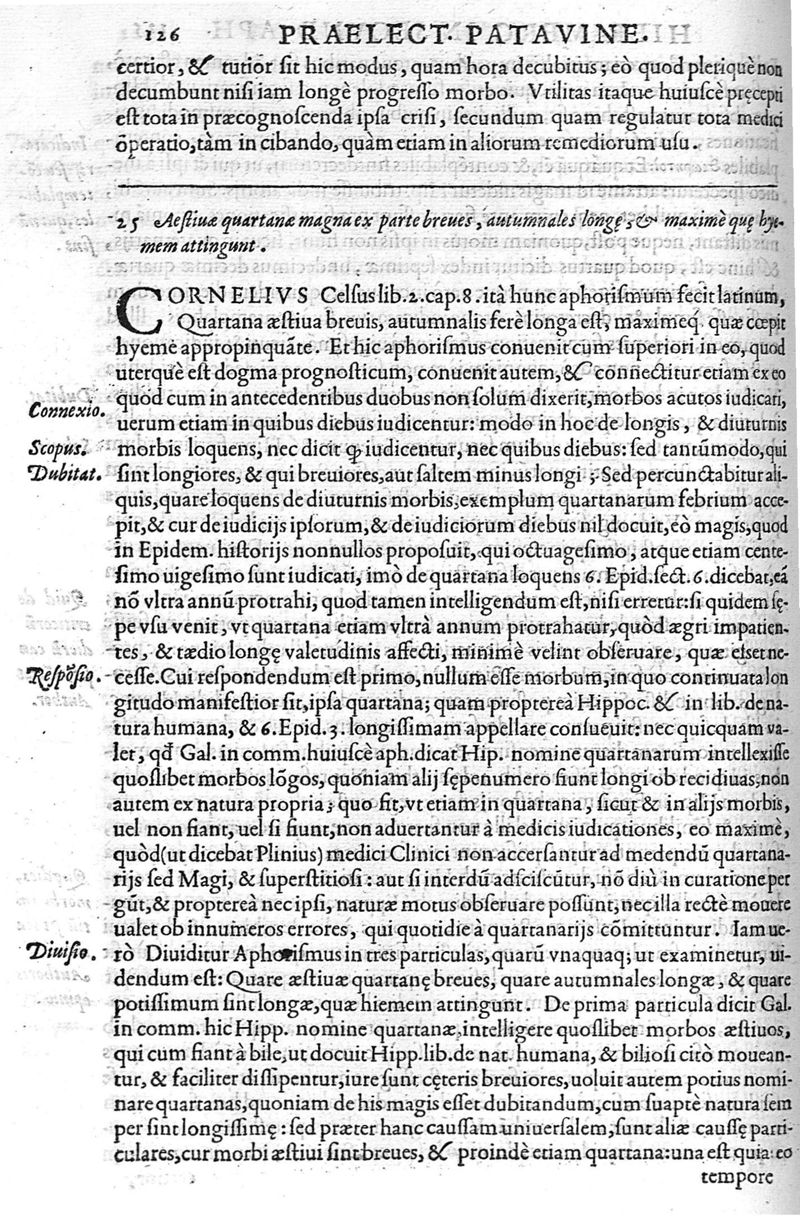 126 PRAELECT. PATAVINE.
certior, & tutior sit hic modus, quam hora decubitus; eò quod pleriquè non
decumbunt nisi iam longè progresso morbo. Vtilitas itaque huiuscè pręcepti
est tota in præcognoscenda ipsa crisi, secundum quam regulatur tota medici
õperatio, tàm in cibando, quàm etiam in aliorum remediorum usu.
25 Aestiuæ quartanæ magna ex parte breues, autumnales longę, & maximè quę hy-
mem attingunt.
CORNELIVS Celsus lib. 2. cap. 8. ità hunc aphorismum fecit latinum,
Quartana æstiua breuis, autumnalis ferè longa est, maximeq́. quæ cœpit
hyeme appropinquãte. Et hic aphorismus conuenit cum superiori in eo, quod
uterquè est dogma prognosticum, conuenit autem, & connectitur etiam ex eo
Connexio. quòd cum in antecedentibus duobus non solum dixerit, morbos acutos iudicari,
uerum etiam in quibus diebus iudicentur: modo in hoc de longis, & diuturnis
Scopus. morbis loquens, nec dicit ꝙ iudicentur, nec quibus diebus: sed tantũmodo, qui
Dubitat. sint longiores, & qui breuiores, aut saltem minus longi; Sed percunctabitur ali-
quis, quare loquens de diuturnis morbis, exemplum quartanarum febrium acce-
pit, & cur de iudicijs ipsorum, & de iudiciorum diebus nil docuit, eò magis, quod
in Epidem. historijs nonnullos proposuit, qui octuagesimo, atque etiam cente-
simo uigesimo sunt iudicati, imò de quartana loquens 6. Epid. sect. 6. dicebat, eã
nõ vltra annũ protrahi, quod tamen intelligendum est, nisi erretur: si quidem sę-
pe vsu venit, vt quartana etiam vltrà annum protrahatur, quòd ægri impatien-
tes, & tædio longę valetudinis affecti, minimè velint obseruare, quæ esset ne-
Respõsio. cesse. Cui respondendum est primo, nullum esse morbum, in quo continuata lon
gitudo manifestior sit, ipsa quartana; quam propterea̍ Hippoc. & in lib. de na-
tura humana, & 6. Epid. 3. longissimam appellare consueuit: nec quicquam va-
let, qđ Gal. in comm. huiuscè aph. dicat Hip. nomine quartanarum intellexisse
quoslibet morbos lõgos, quoniam alij sępenumero fiunt longi ob recidiuas, non
autem ex natura propria; quo fit, vt etiam in quartana, sicut & in alijs morbis,
uel non fiant, uel si fiunt, non aduertantur à medicis iudicationes, eo maximè,
quòd (ut dicebat Plinius) medici Clinici non accersantur ad medendũ quartana-
rijs sed Magi, & superstitiosi: aut si interdũ adsciscũtur, nõ diù in curatione per
gũt, & proptereà nec ipsi, naturæ motus obseruare possunt, nec illa rectè mouere
ualet ob innumeros errores, qui quotidie à quartanarijs cõmittuntur. Iam ue-
Diuisio. rò Diuiditur Aphorismus in tres particulas, quarũ vnaquaq; ut examinetur, ui-
dendum est: Quare æstiuæ quartanę breues, quare autumnales longæ, & quare
potissimum sint longæ, quæ hiemem attingunt. De prima particula dicit Gal.
in comm. hic Hipp. nomine quartanæ, intelligere quoslibet morbos æstiuos,
qui cum fiant à bile, ut docuit Hipp. lib. de nat. humana, & biliosi citò mouean-
tur, & faciliter dissipentur, iure sunt cęteris breuiores, uoluit autem potius nomi-
nare quartanas, quoniam de his magis esset dubitandum, cum suaptè natura sem
per sint longissimę: sed præter hanc caussam uniuersalem, sunt aliæ caussę parti-
culares, cur morbi æstiui sint breues, & proindè etiam quartana: una est quia eo
tempore